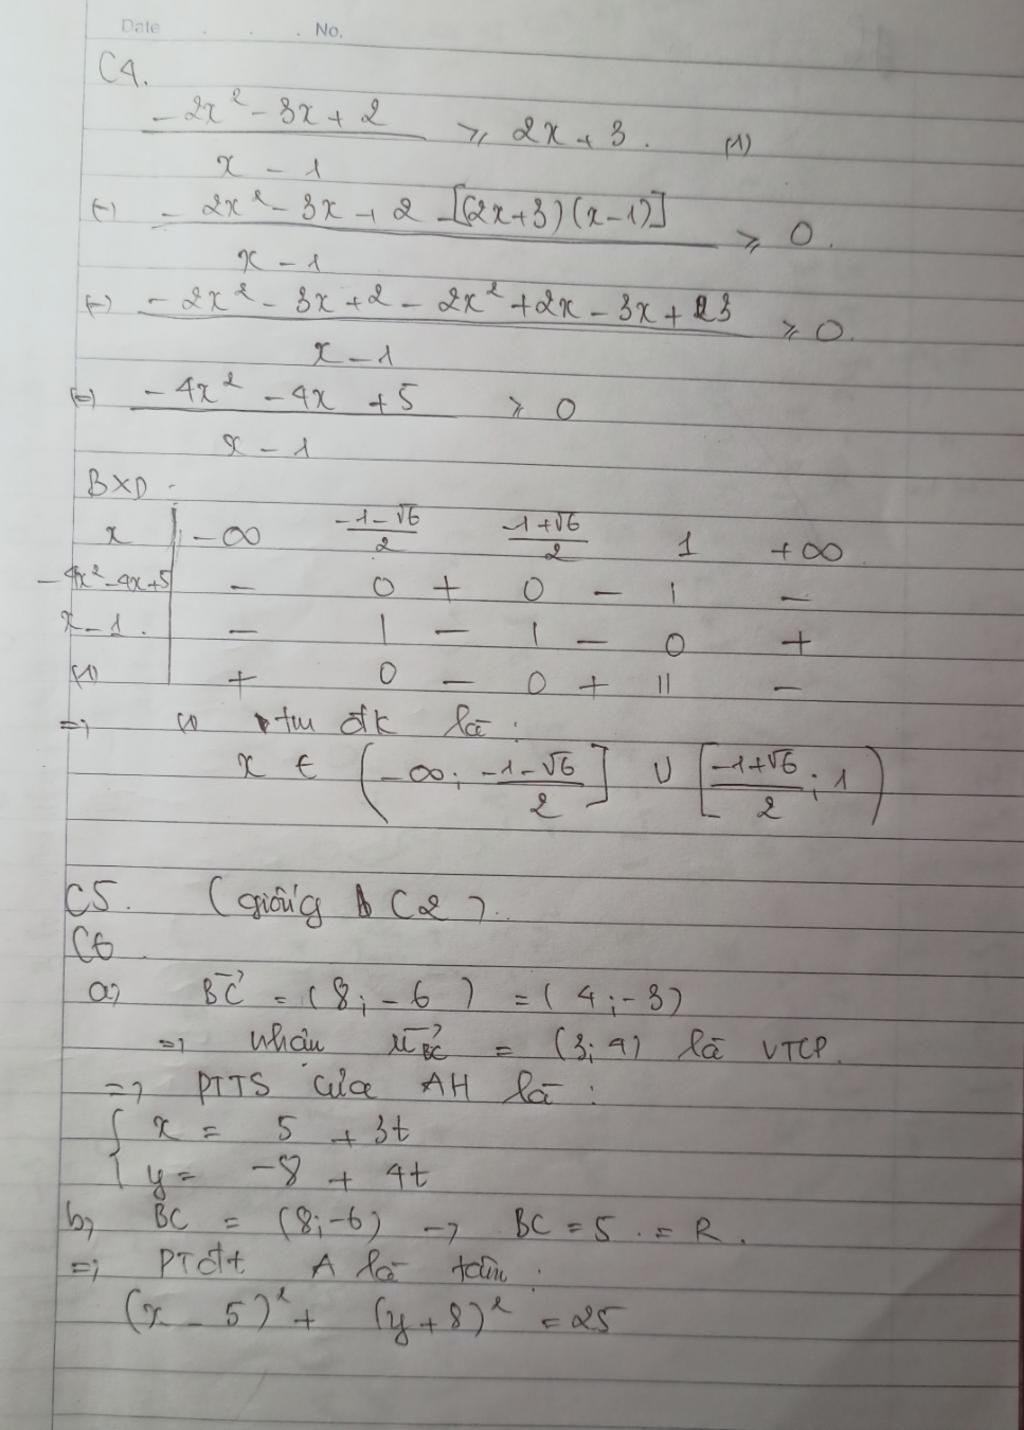 Date . . . No.
C4.
-2x² - 3x + 2 / x - 1 ⩾ 2x + 3. (1)
(=) -2x² - 3x + 2 - [(2x+3)(x-1)] / x - 1 ⩾ 0.
(=) -2x² - 3x + 2 - 2x² + 2x - 3x + 3 / x - 1 ⩾ 0.
(=) -4x² - 4x + 5 / x - 1 ⩾ 0
BXD.
x | -∞ (-1-√6)/2 (-1+√6)/2 1 +∞
-4x²-4x+5 | - 0 + 0 - | -
x-1. | - | - | - 0 +
(1) | + 0 - 0 + || -
=> (1) tm đk là :
x ∈ (-∞; (-1-√6)/2] ∪ [(-1+√6)/2; 1)
C5. (giống C2).
C6
a, BC→ = (8; -6) = (4; -3)
=> nhân u→BC = (3; 4) là VTCP.
=> PTTS của AH là :
{ x = 5 + 3t
{ y = -8 + 4t
b, BC = (8; -6) -> BC = 5. = R.
=> PTđt A là tâm.
(x - 5)² + (y + 8)² = 25